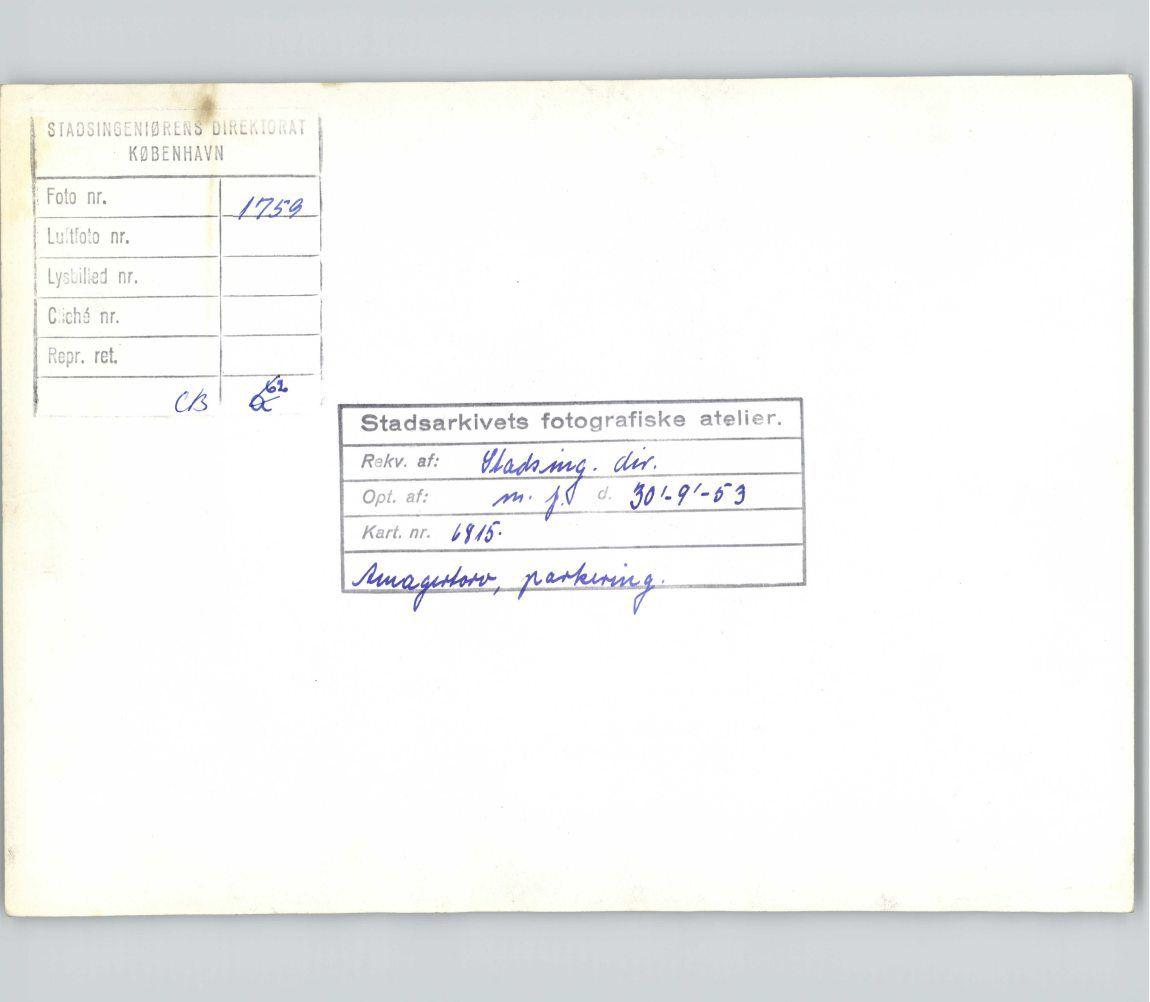 STADSINGENIØRENS DIREKTORAT
KØBENHAVN
Foto nr. 1759
Luftfoto nr.
Lysbilled nr.
Cliché nr.
Repr. ret.
CB 62
Stadsarkivets fotografiske atelier.
Rekv. af: Stadsing. dir.
Opt. af: m. f. d. 30'-9'-53
Kart. nr. 6915.
Amagertorv, parkering.